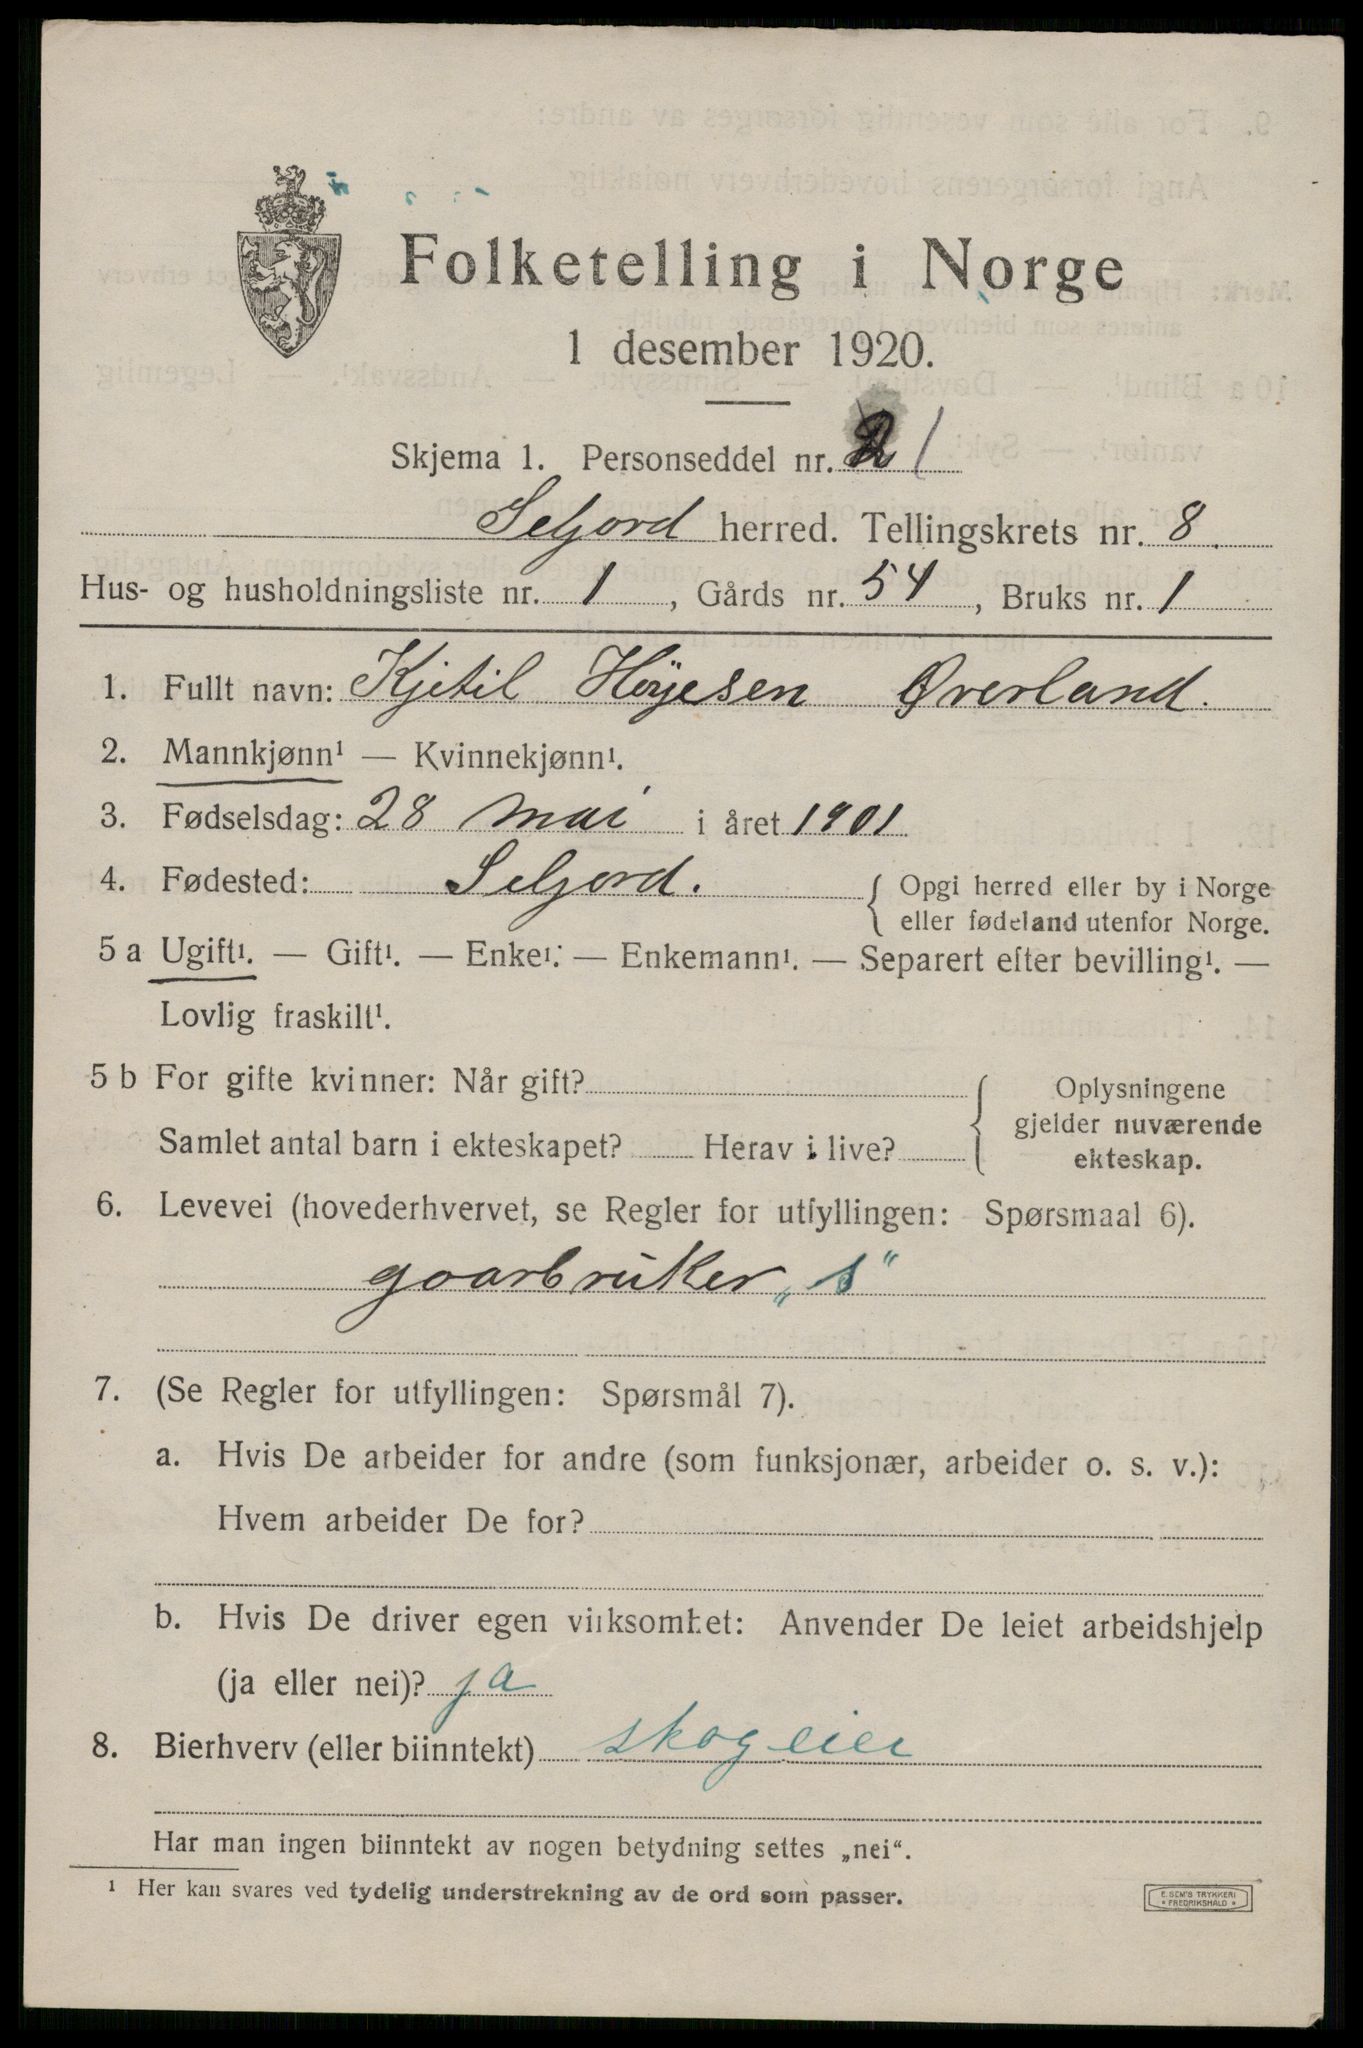 Folketelling i Norge
1 desember 1920.
Skjema 1. Personseddel nr. 1
Seljord herred. Tellingskrets nr. 8.
Hus- og husholdningsliste nr. 1, Gårds nr. 54, Bruks nr. 1
1. Fullt navn: Kjetil Høyesen Øverland.
2. Mannkjønn¹ — Kvinnekjønn¹.
3. Fødselsdag: 28 mai i året 1901
4. Fødested: Seljord. { Opgi herred eller by i Norge
eller fødeland utenfor Norge.
5 a Ugift¹. — Gift¹. — Enke¹. — Enkemann¹. — Separert efter bevilling¹. —
Lovlig fraskilt¹.
5 b For gifte kvinner: Når gift? { Oplysningene
gjelder nuværende
Samlet antal barn i ekteskapet? Herav i live? ekteskap.
6. Levevei (hovederhvervet, se Regler for utfyllingen: Spørsmaal 6).
gaarbruker „s“
7. (Se Regler for utfyllingen: Spørsmål 7).
a. Hvis De arbeider for andre (som funksjonær, arbeider o. s. v.):
Hvem arbeider De for?
b. Hvis De driver egen virksomhet: Anvender De leiet arbeidshjelp
(ja eller nei)? ja
8. Bierhverv (eller biinntekt) skogeier
Har man ingen biinntekt av nogen betydning settes „nei“.
¹ Her kan svares ved tydelig understrekning av de ord som passer.
E. SEM'S TRYKKERI
• FREDRIKSHALD •